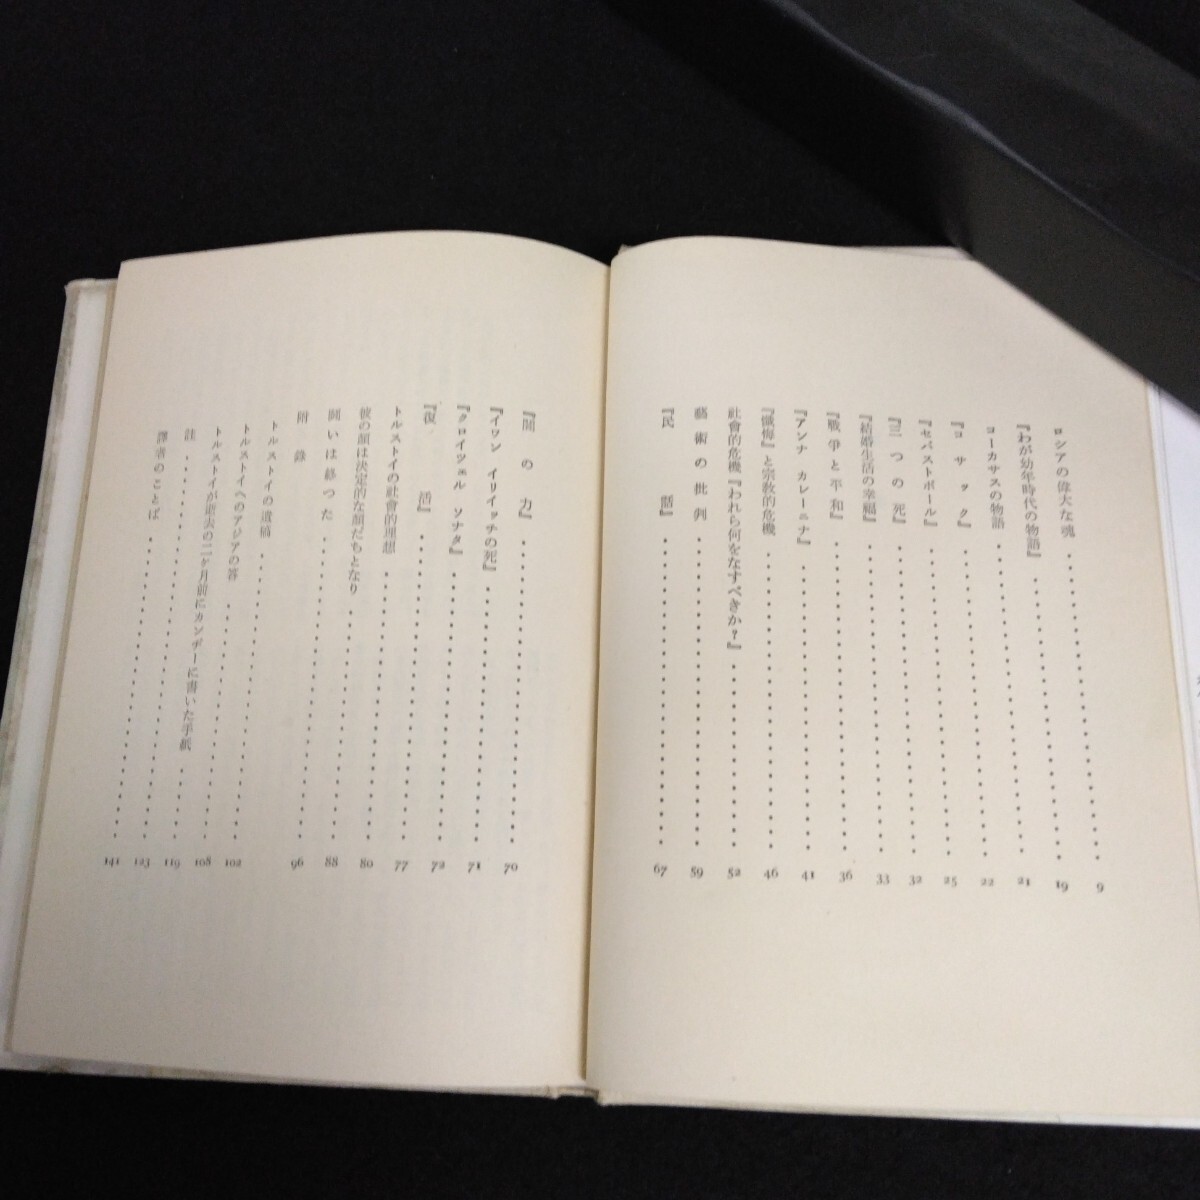 ロシアの偉大な魂 9
『わが幼年時代の物語』 19
コーカサスの物語 21
『コサック』 22
『セバストポール』 25
『三つの死』 32
『結婚生活の幸福』 33
『戰爭と平和』 36
『アンナ カレーニナ』 41
『懺悔』と宗教的危機 46
社會的危機『われら何をなすべきか?』 52
藝術の批判 59
『民話』 67
『闇の力』 70
『イワン イリイッチの死』 71
『クロイツェル ソナタ』 72
『復活』 77
トルストイの社會的理想 80
彼の顏は決定的な顏だちとなり 88
鬪いは終つた 96
附錄
トルストイの遺稿 102
トルストイへのアジアの答 108
トルストイが逝去の二ヶ月前にカンヂーに書いた手紙 119
註 123
譯者のことば 141